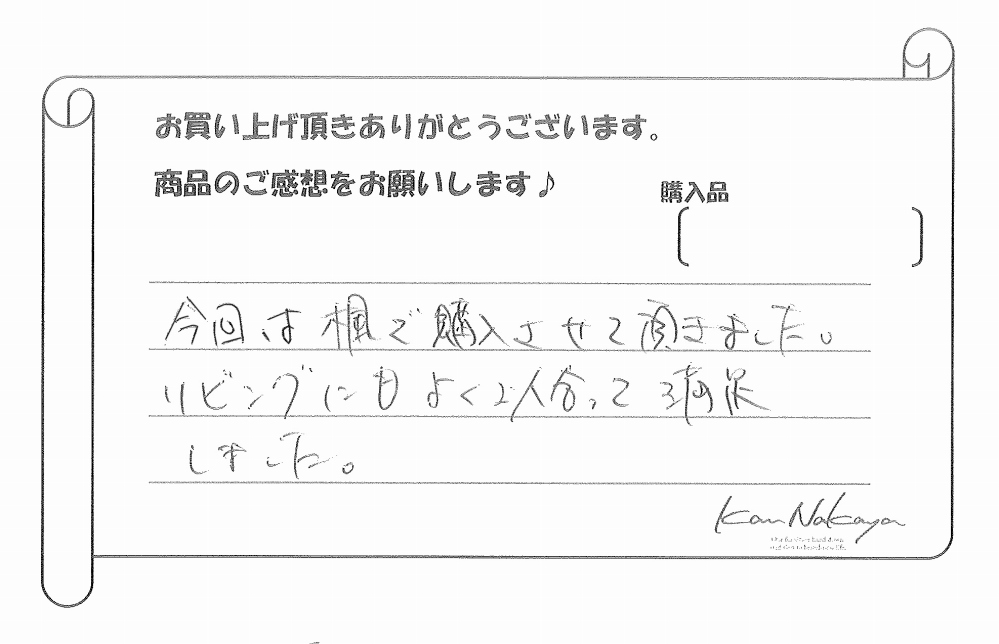 お買い上げ頂きありがとうございます。
商品のご感想をお願いします♪
購入品
今回は楓で購入させて頂きました。
リビングにもよく似合って満足
しました。
Kan Nakaya